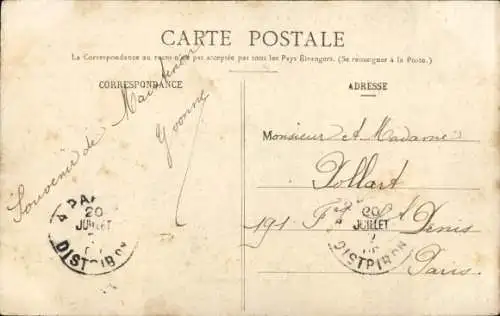 CARTE POSTALE
La Correspondance au recto n'est pas acceptée par tous les Pays Étrangers. (Se renseigner à la Poste.)
CORRESPONDANCE
ADRESSE
Souvenir de Maintenon
Yvonne
Monsieur et Madame
Pollart
191 Fg St Denis
Paris
20
JUILLET
DISTRIBON
20
JUILLET
DISTRIBON